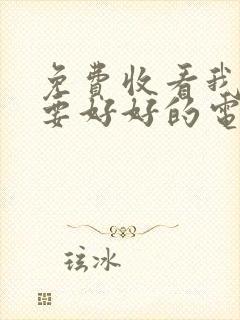 免費收看我
要好好的電
玹冰